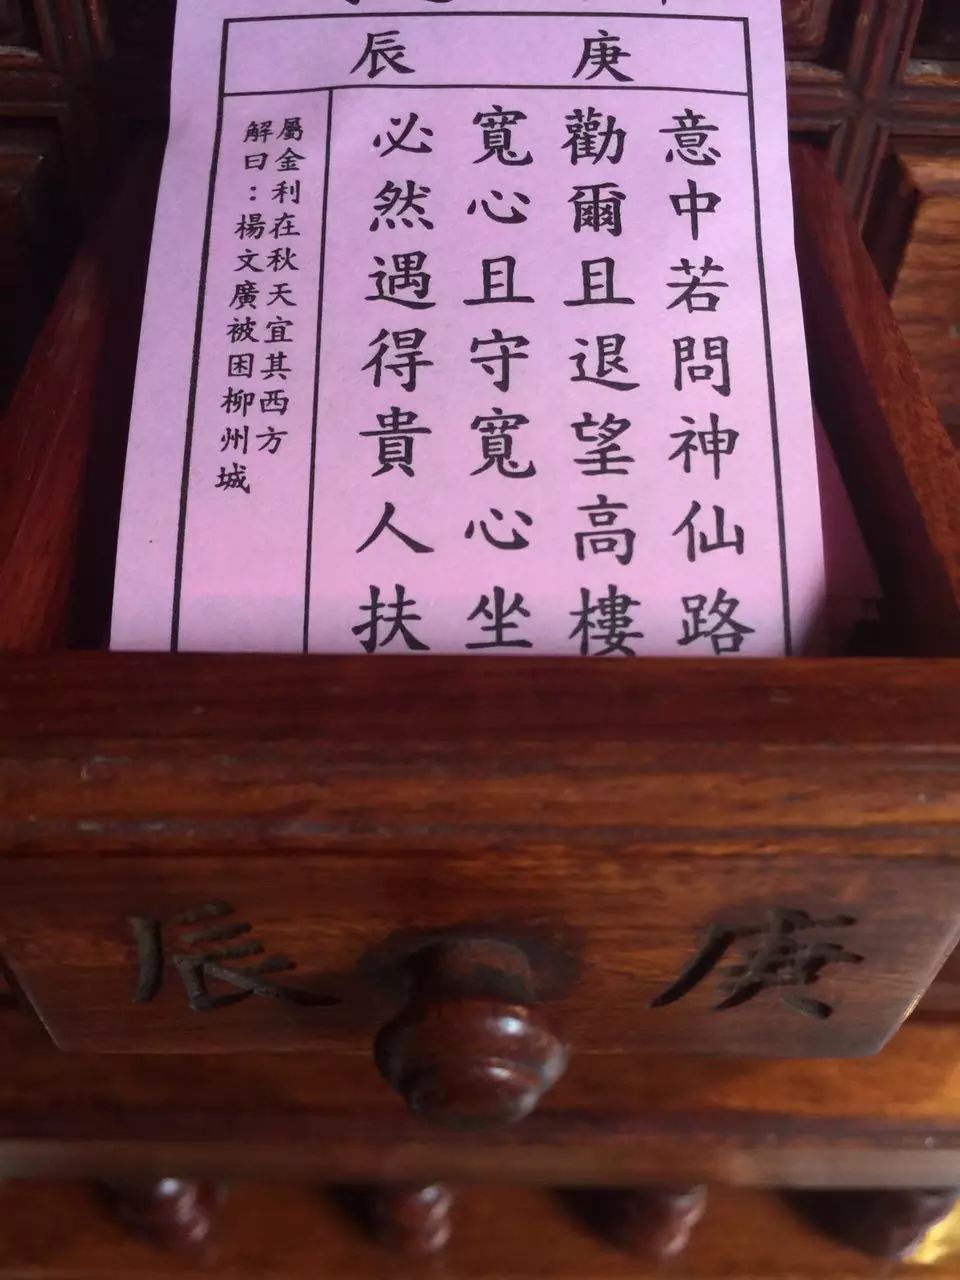 庚辰
意中若問神仙路
勸爾且退望高樓
寬心且守寬心坐
必然遇得貴人扶
屬金利在秋天宜其西方
解曰：楊文廣被困柳州城
庚辰